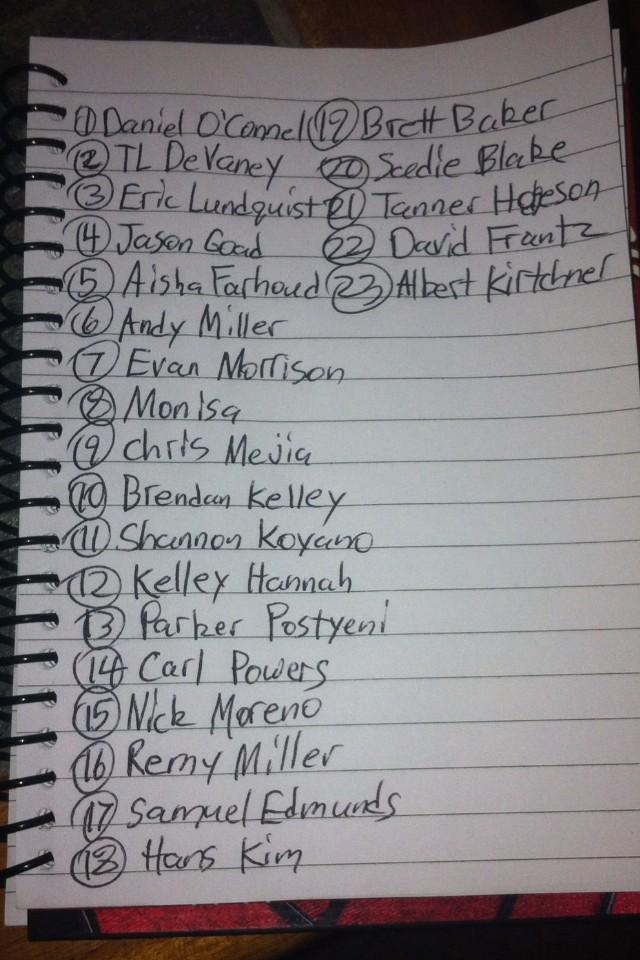 ① Daniel O'Connel
② TL DeVaney
③ Eric Lundquist
④ Jason Goad
⑤ Aisha Farhoud
⑥ Andy Miller
⑦ Evan Morrison
⑧ Monisa
⑨ Chris Mejia
⑩ Brendan Kelley
⑪ Shannon Koyano
⑫ Kelley Hannah
⑬ Parker Postyeni
⑭ Carl Powers
⑮ Nick Moreno
⑯ Remy Miller
⑰ Samuel Edmunds
⑱ Hans Kim
⑲ Brett Baker
⑳ Scedie Blake
㉑ Tanner
㉒ David Frantz
㉓ Albert Kirtchner